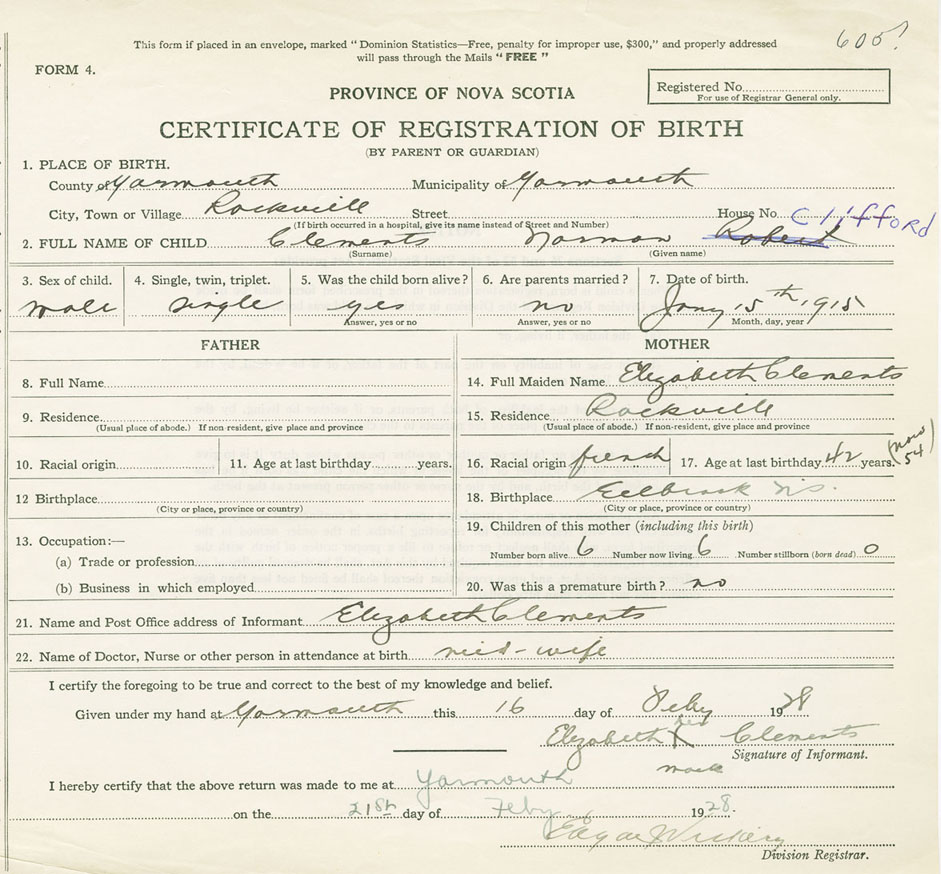 605
This form if placed in an envelope, marked "Dominion Statistics—Free, penalty for improper use, $300," and properly addressed
will pass through the Mails "FREE"
FORM 4.
Registered No.
For use of Registrar General only.
PROVINCE OF NOVA SCOTIA
CERTIFICATE OF REGISTRATION OF BIRTH
(BY PARENT OR GUARDIAN)
1. PLACE OF BIRTH.
County of Yarmouth Municipality of Yarmouth
City, Town or Village Rockville Street House No.
(If birth occurred in a hospital, give its name instead of Street and Number)
Clifford
2. FULL NAME OF CHILD Clements Norman Robert
(Surname) (Given name)
3. Sex of child. 4. Single, twin, triplet 5. Was the child born alive? 6. Are parents married? 7. Date of birth.
male single yes no Jany 15th, 1915
Answer, yes or no Answer, yes or no Month, day, year
FATHER MOTHER
8. Full Name 14. Full Maiden Name Elizabeth Clements
9. Residence 15. Residence Rockville
(Usual place of abode.) If non-resident, give place and province (Usual place of abode.) If non-resident, give place and province
10. Racial origin 11. Age at last birthday years. 16. Racial origin french 17. Age at last birthday 42 years. (now 54)
12 Birthplace 18. Birthplace Eelbrook N.S.
(City or place, province or country) (City or place, province or country)
19. Children of this mother (including this birth)
13. Occupation:—
Number born alive 6 Number now living 6 Number stillborn (born dead) 0
(a) Trade or profession
(b) Business in which employed 20. Was this a premature birth? no
21. Name and Post Office address of Informant Elizabeth Clements
22. Name of Doctor, Nurse or other person in attendance at birth mid-wife
I certify the foregoing to be true and correct to the best of my knowledge and belief.
Given under my hand at Yarmouth this 16 day of Feby 1928
Elizabeth her X Clements
mark
Signature of Informant.
I hereby certify that the above return was made to me at Yarmouth
on the 21st day of Feby 1928.
Edgar
Division Registrar.